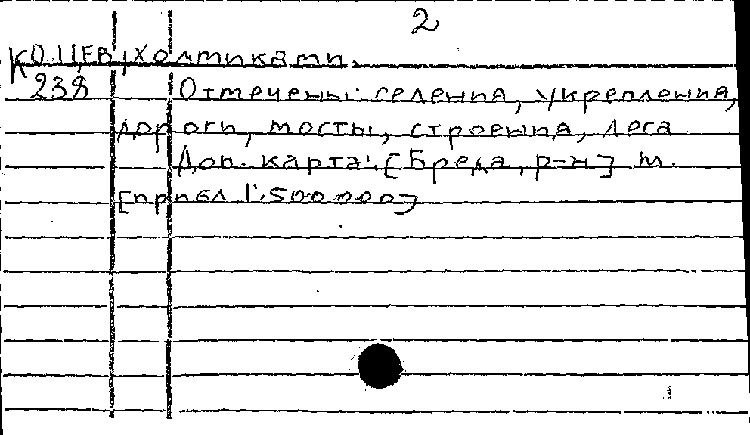 2
КО ЦЕВ, холмиками.
238 Отмечены: селения, укрепления,
дороги, мосты, строения, леса
Доп. карта: [Бреда, р-н] М.
[прибл 1:500000]